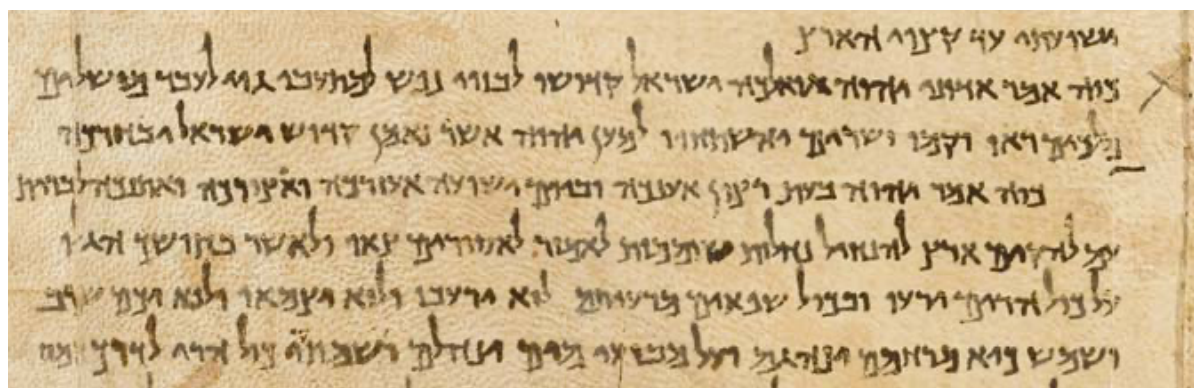 ישועתי עד קצוי הארץ
כוה אמר אדוני יהוה גואלכה ישראל קדושו לבזוי נפש למתעבי גוי לעבד מושלים
מלכים ראו וקמו ושרים והשתחוו למען יהוה אשר נאמן קדוש ישראל יבחרכה
כוה אמר יהוה בעת רצון אענכה וביום ישועה אעזרכה ואצורכה ואתנכה לברית
עם להקים ארץ להנחיל נחלות שוממות לאמור לאסורים צאו ולאשר בחושך הגלו
על כול הרים ירעו ובכול שפאים מרעיתם לוא ירעבו ולוא יצמאו ולוא יכם שרב
ושמש כיא מרחמם ינהגם ועל מבועי מים ינהלם ושמתי כול הרי לדרך